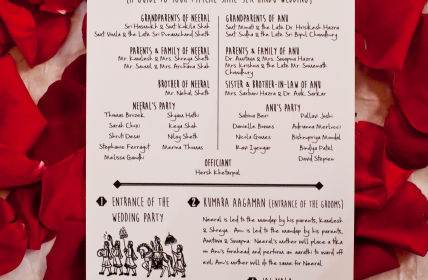 (A GUIDE TO YOUR TYPICAL SAME-SEX HINDU WEDDING)
GRANDPARENTS OF NEERAL
Sri Hasmukh & Smt Kokila Shah
Smt Vimla & the Late Sri Punamchand Sheth
PARENTS & FAMILY OF NEERAL
Mr. Kamlesh & Mrs. Shreya Sheth
Mr. Sunil & Mrs. Archana Shah
BROTHER OF NEERAL
Mr. Nehal Sheth
GRANDPARENTS OF ANU
Smt Minati & the Late Dr. Hrishikesh Hazra
Smt Sudha & the Late Sri Gopal Choudhury
PARENTS & FAMILY OF ANU
Dr. Amitava & Mrs. Swapna Hazra
Mrs. Krishna & the Late Mr. Somenath
Choudhury
SISTER & BROTHER-IN-LAW OF ANU
Mrs. Sarbani Hazra & Dr. Alok Sarkar
NEERAL'S PARTY
Thomas Brozek
Sarah Chizi
Shruti Desai
Stephanie Ferragut
Melissa Gandhi
Shyam Hathi
Keya Shah
Nilay Sheth
Marina Thomas
ANU'S PARTY
Sabina Beri
Danielle Barnes
Nicola Gomes
Ravi Iyengar
Pallavi Joshi
Adrianna Merlucci
Bishnupriya Mondal
Bindiya Patel
David Stepien
OFFICIANT
Harsh Khetarpal
1 ENTRANCE OF THE
WEDDING PARTY
2 KUMARA AAGAMAN (ENTRANCE OF THE GROOMS)
Neeral is led to the mandap by his parents, Kamlesh
& Shreya. Anu is led to the mandap by his parents,
Amitava & Swapna. Neeral's mother will place a tika
on Anu's forehead and perform an aarathi to ward off
evil. Anu's mother will do the same for Neeral.
JAI MALA